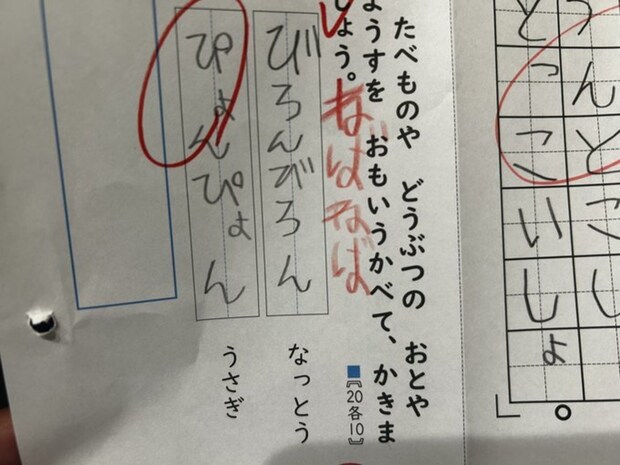 うんとこし
どっこいしょ
たべものや　どうぶつの　おとや
ようすを　おもいうかべて、かきま
しょう。
ねばねば
■〖20各10〗
びろんびろん
なっとう
ぴょんぴょん
うさぎ